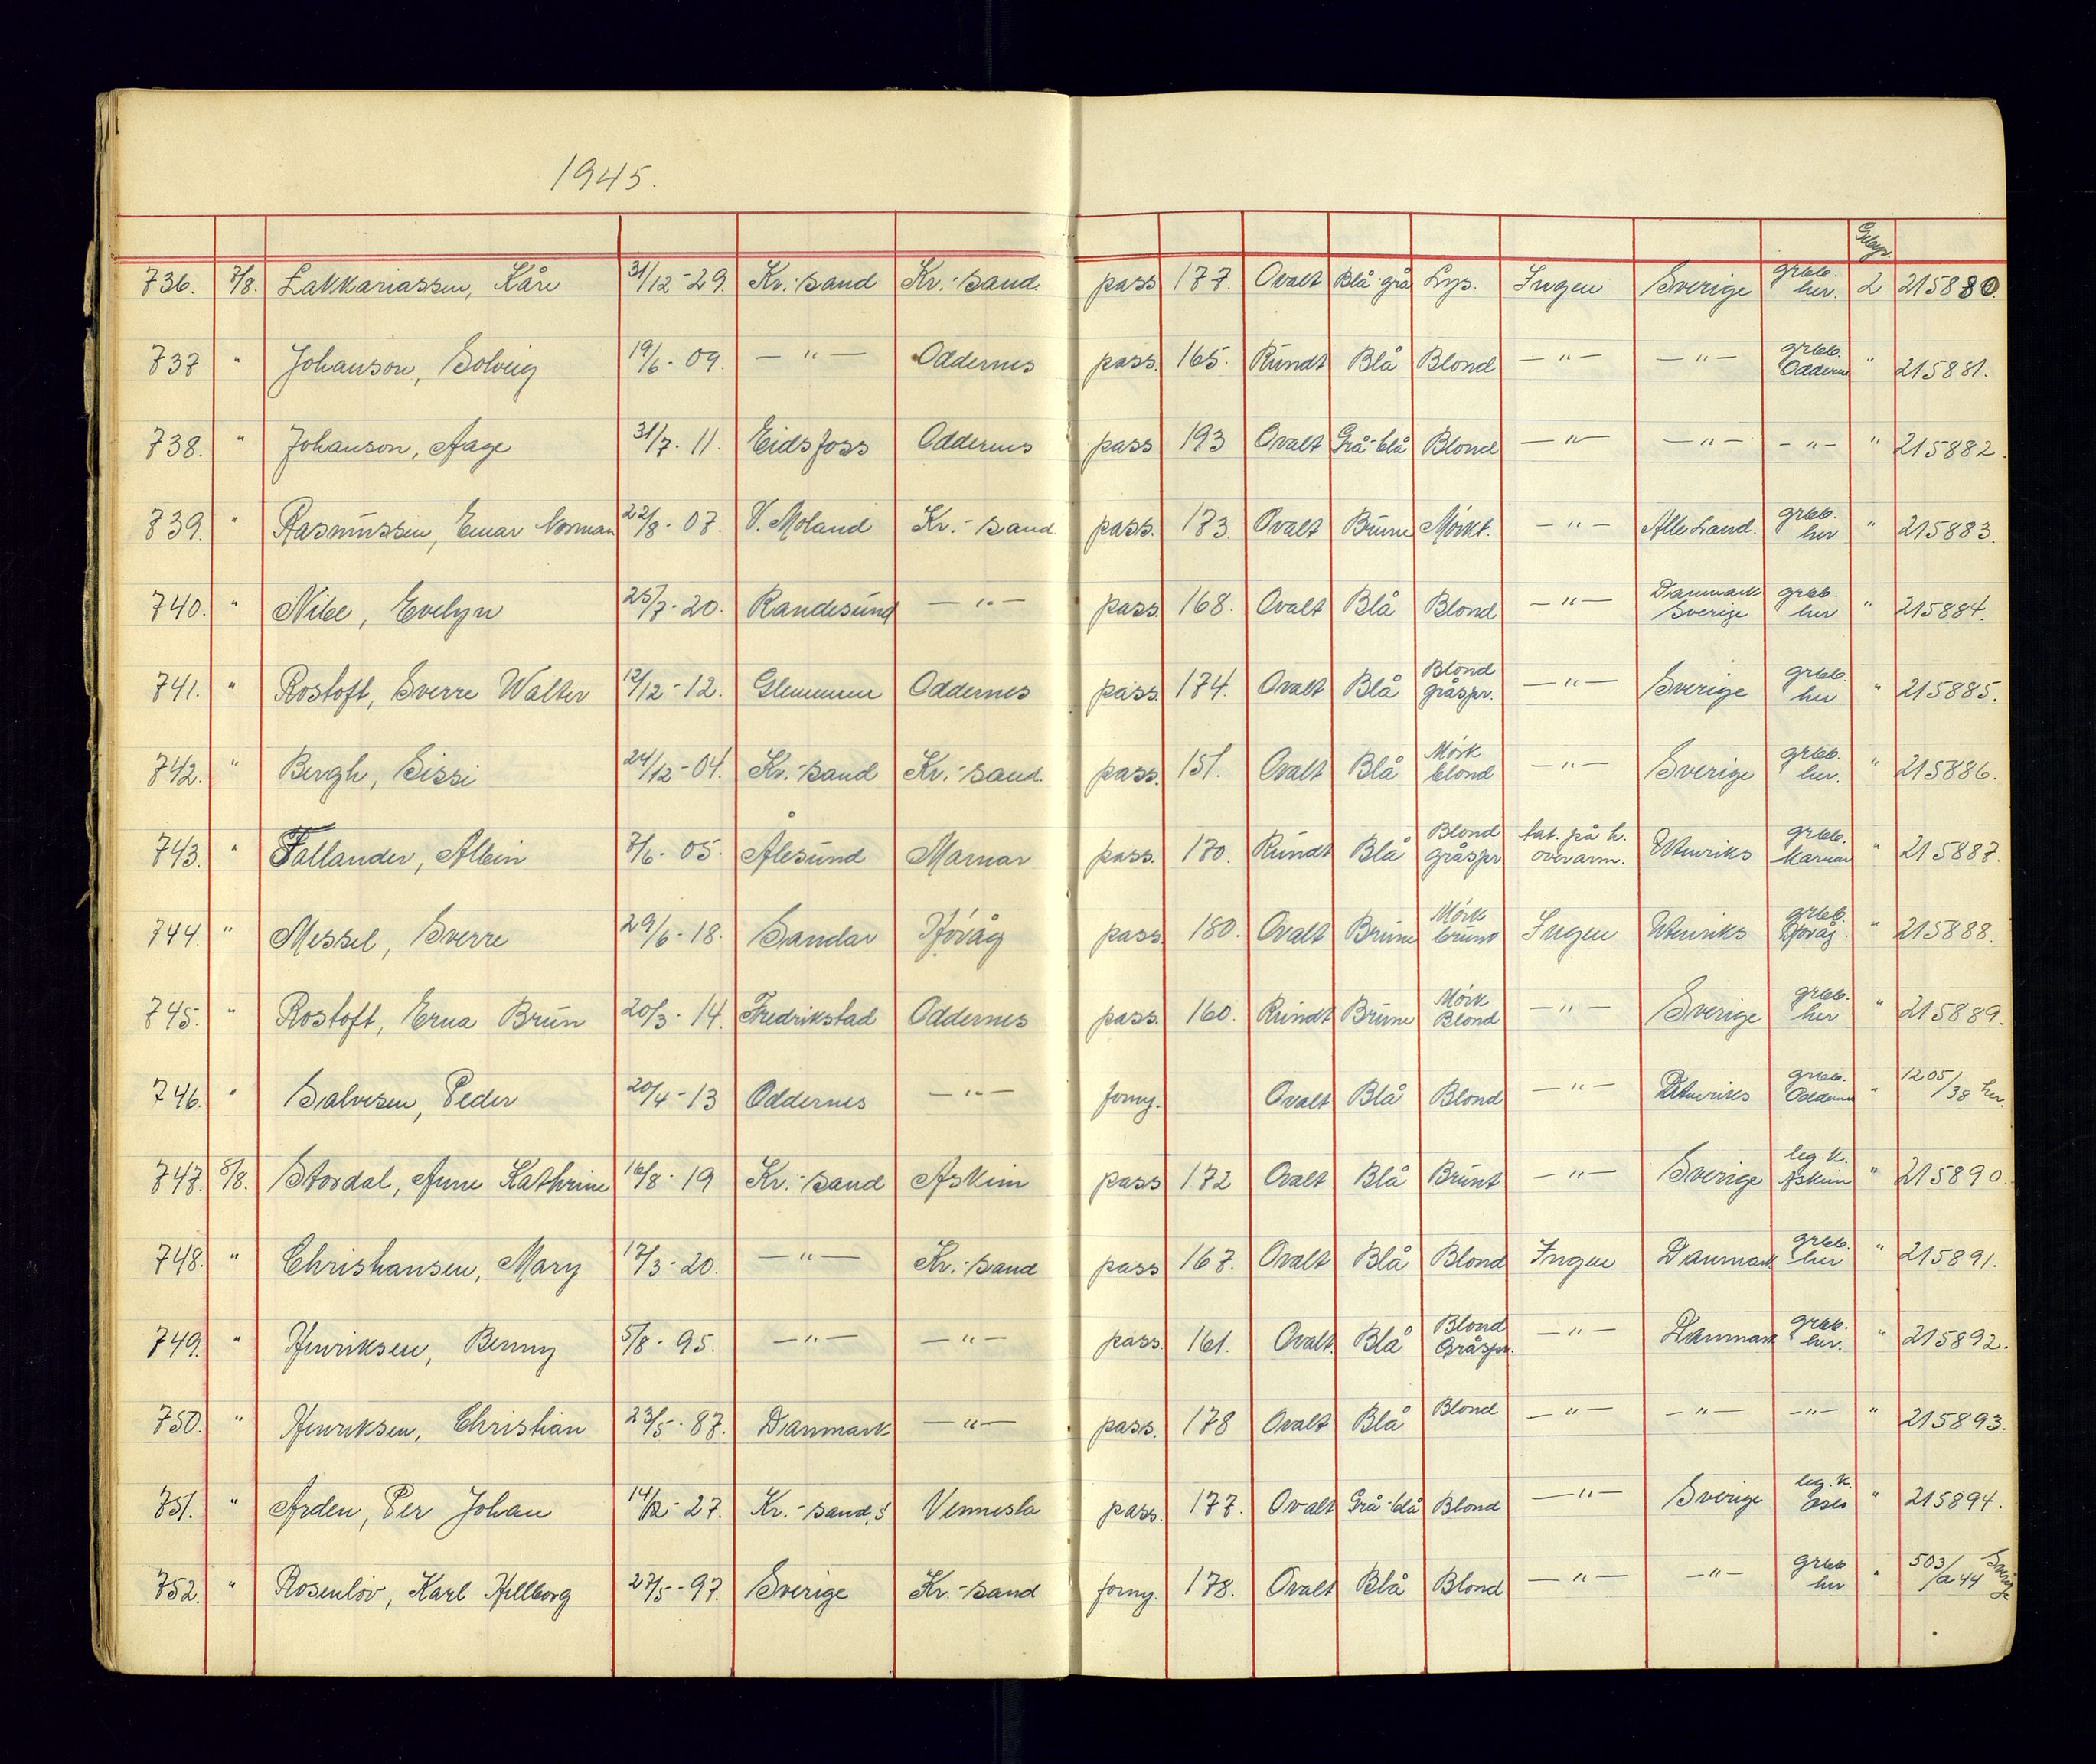 1945.
Gebyr.
736. 7/8. Zakkariassen, Kåre 31/12-29. Kr.-sand Kr.-sand. pass 177. Ovalt Blå-grå Lys. Ingen Sverige grbb. her. 2 215880.
737 " Johanson, Solveig 19/6-09. —"— Oddernes pass. 165. Rundt Blå Blond —"— —"— grbb. Oddernes " 215881.
738. " Johanson, Aage 31/7-11. Eidsfoss Oddernes pass 193 Ovalt Grå-blå Blond —"— —"— -"- " 215882.
739. " Rasmussen, Einar Norman 22/8-07. V. Moland Kr.-sand pass. 173. Ovalt Brune Mørkt. —"— Alle Land. grbb. her " 215883.
740. " Nibe, Evelyn 25/7-20. Randesund —"— pass. 168. Ovalt Blå Blond —"— Danmark Sverige grbb. her " 215884.
741. " Rostoft, Sverre Walter 12/12-12. Glemmen Oddernes pass. 174. Ovalt Blå Blond gråspr. —"— Sverige grbb. her " 215885.
742. " Bergh, Sissi 24/12-04. Kr.-sand Kr.-sand. pass. 151. Ovalt Blå Mørk blond —"— Sverige grbb. her. " 215886.
743. " Fallander, Albin 7/6-05. Ålesund Marnar pass. 170. Rundt Blå Blond gråspr tat. på h. overarm. Utenriks grbb. Marnar " 215887.
744. " Messel, Sverre 29/6-18. Sandar Høvåg pass. 180. Ovalt Brune Mørk brunt Ingen Utenriks grbb. Høvåg " 215888.
745. " Rostoft, Erna Brun 20/3-14. Fredrikstad Oddernes pass. 160. Rundt Brune Mørk Blond —"— Sverige grbb. her " 215889.
746. " Salvesen, Peder 20/4-13 Oddernes —"— forny. Ovalt Blå Blond —"— Utenriks grbb. Oddernes " 1205/38 her.
747. 8/8. Stordal, Anne Kathrine 16/8-19 Kr.-sand Askim pass 172 Ovalt Blå Brunt —"— Sverige leg.k. Askim " 215890.
748. " Christiansen, Mary 17/3-20. —"— Kr.-sand pass 167. Ovalt Blå Blond Ingen Danmark grbb. her " 215891.
749. " Henriksen, Benny 5/8-95. —"— —"— pass. 161. Ovalt. Blå Blond Gråspr. —"— Danmark grbb. her. " 215892.
750. " Henriksen, Christian 23/5-87. Danmark —"— pass. 178 Ovalt Blå Blond —"— -"- -"- " 215893.
751. " Arden, Per Johan 14/12-27. Kr.-sand, S Vennesla pass. 177. Ovalt Grå-blå Blond —"— Sverige leg.k. Oslo " 215894.
752. " Rosenlöv, Karl Hillborg 27/5-97. Sverige Kr.-sand forny. 178. Ovalt Blå Blond —"— -"- grbb her " 503/a 44 Sverige